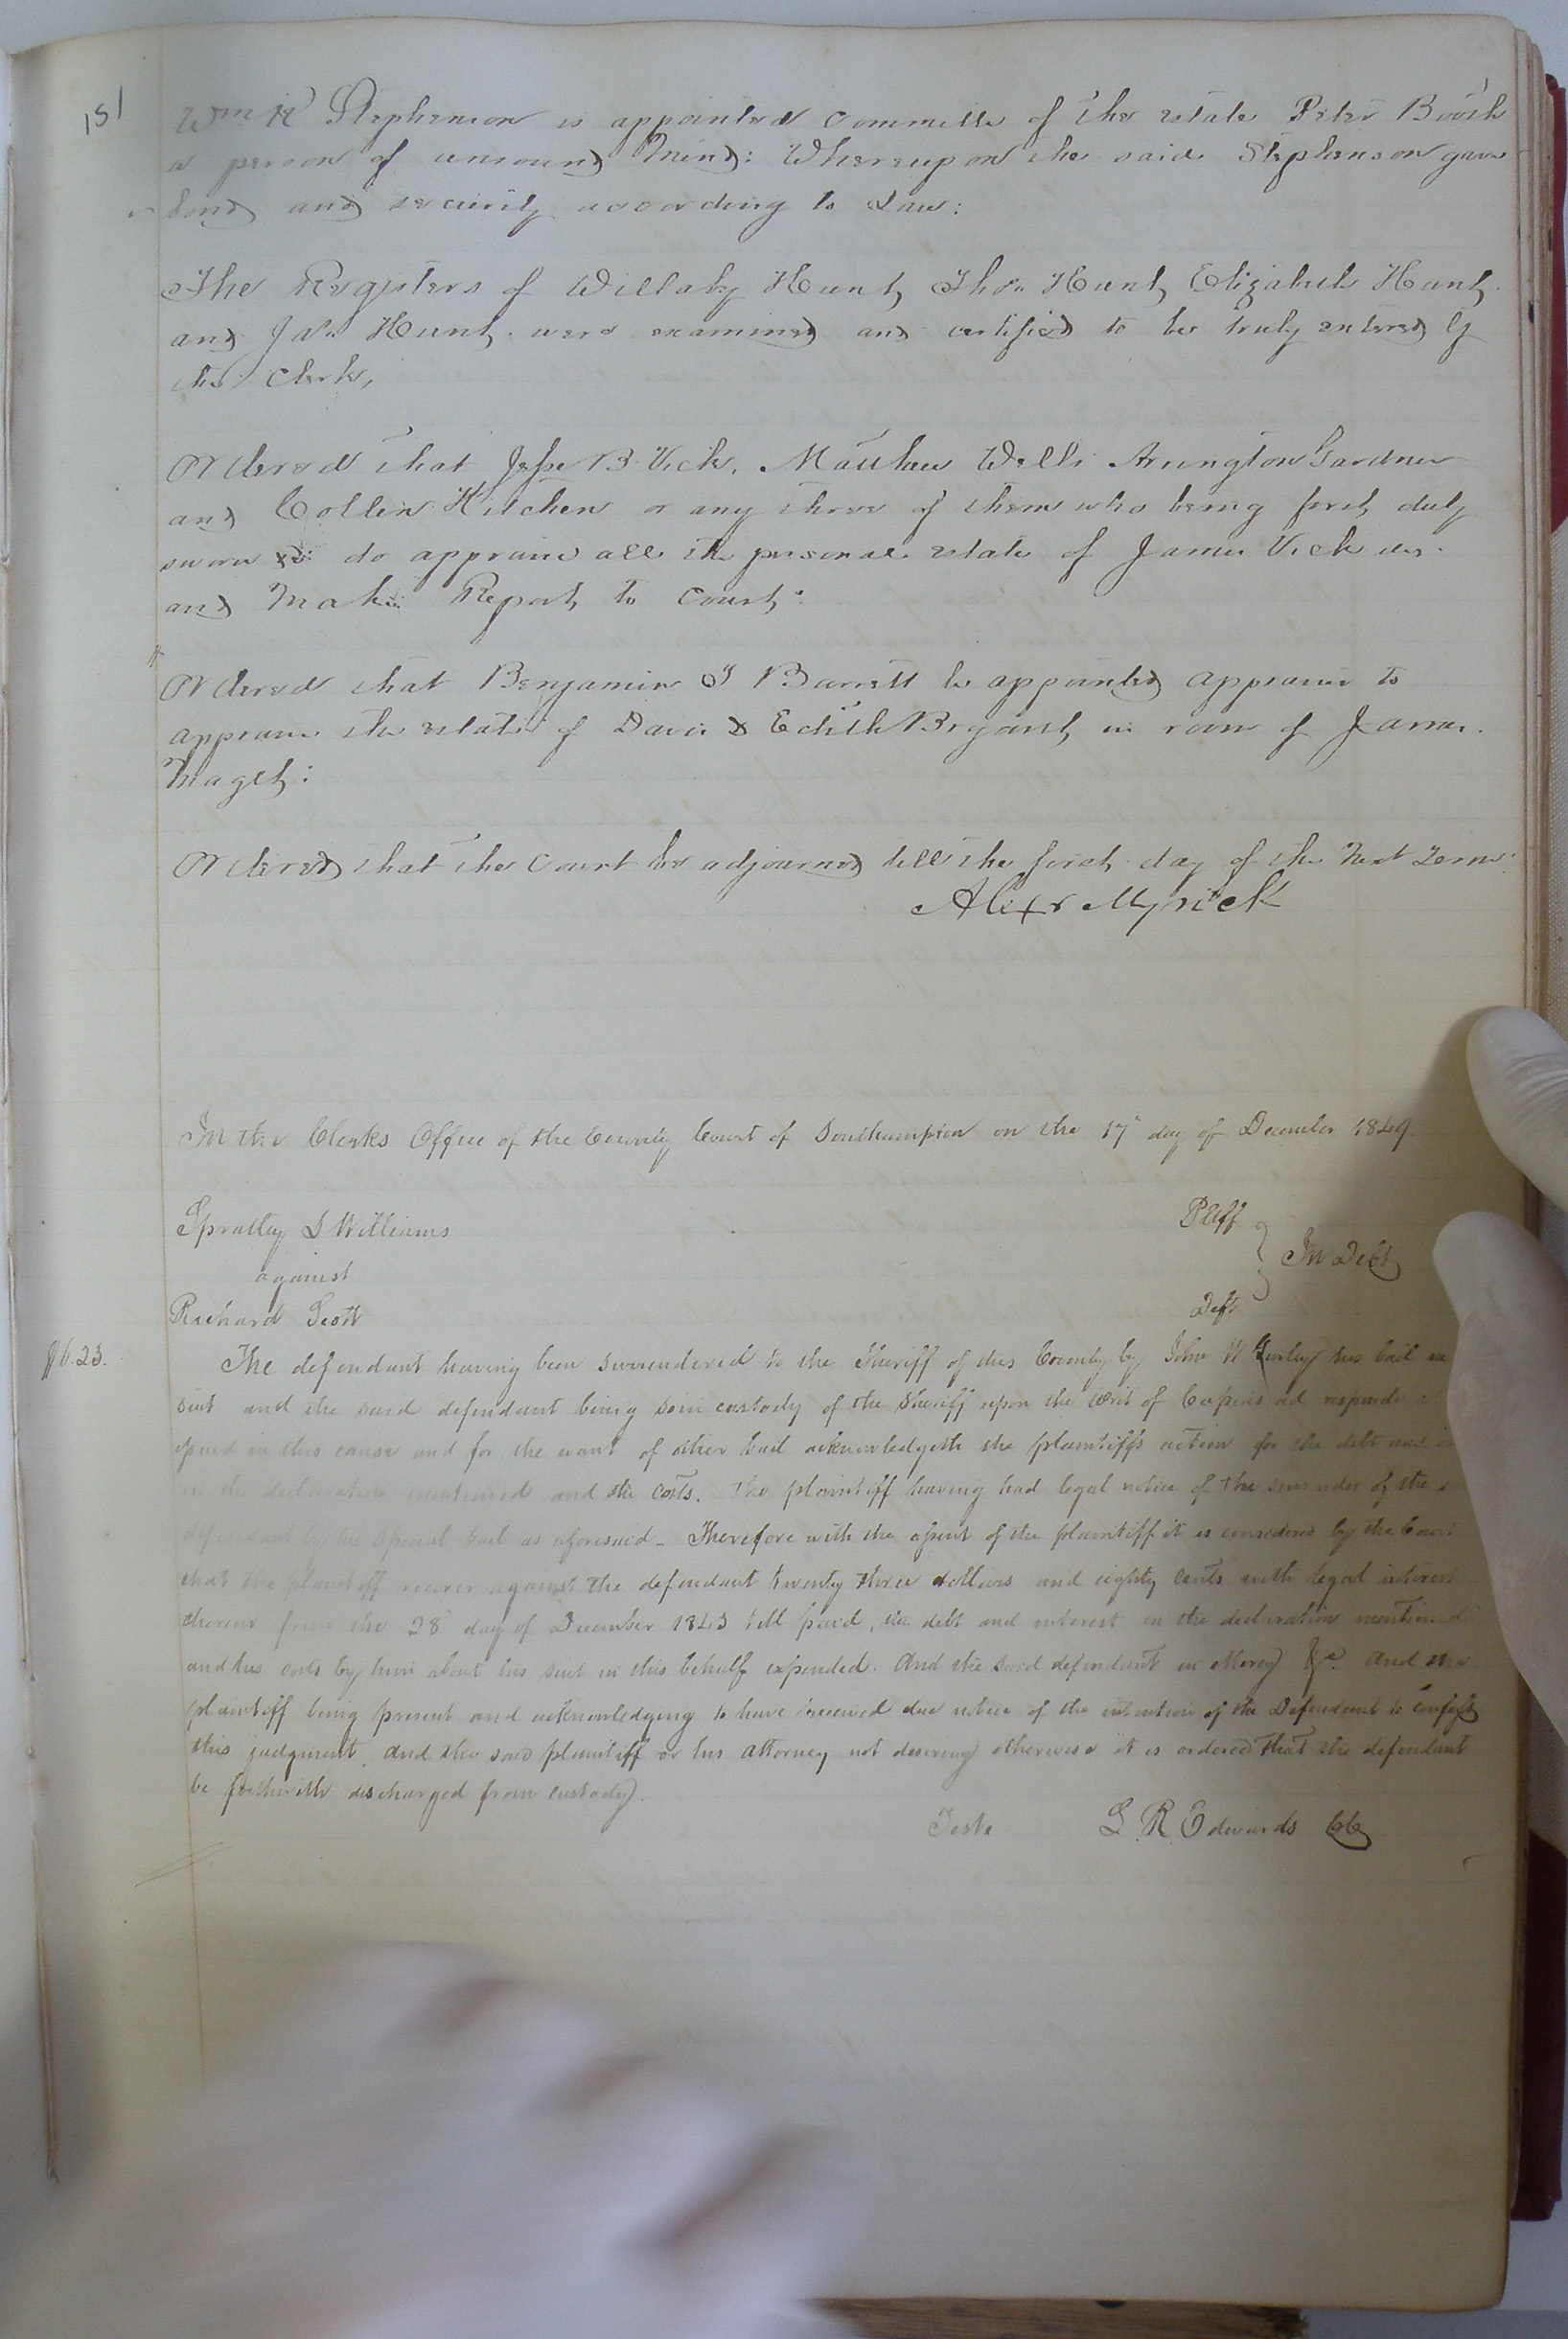 151
Wm H Stephenson is appointed Committee of the estate Peter Booth
a person of unsound Mind: Whereupon the said Stephenson gave
bond and security according to Law:
The Registers of Willaby Hunt, Thos Hunt, Elizabeth Hunt,
and Jas Hunt, were examined and certified to be truly entered by
the Clerk,
Ordered that Jesse B. Vick, Matthew Wells Arrington Gardner
and Collin Kitchen or any three of them who being first duly
sworn do appraise all the personal estate of James Vick des.
and Make Report to Court:
Ordered that Benjamin J Barrett be appointed appraiser to
appraise the estate of Davis & Edith Bryant, in room of James
Maget:
Ordered that the Court be adjourned till the first day of the Next Term:
Alexr Myrick
In the Clerks Office of the County Court of Southampton on the 17" day of December 1849.
Spratley S Williams Pltff
against In Debt
Richard Scott Deft
The defendant having been surrendered to the Sheriff of this County by John W his bail in
suit and the said defendant being so in custody of the Sheriff upon the Writ of Capias ad
issued in this cause and for the want of other bail acknowledgeth the plaintiffs action for the debt and
in the declaration mentioned and the costs. The plaintiff having had legal notice of the surrender of the
defendant by his special bail as aforesaid - Therefore with the assent of the plaintiff it is considered by the Court
that the plaintiff recover against the defendant twenty three dollars and eighty cents with legal interest
thereon from the 28 day of December 1843 till paid, the debt and interest in the declaration mentioned
and his costs by him about his suit in this behalf expended. And the said defendant in Mercy &c. And the
plaintiff being present and acknowledging to have received due notice of the intention of the Defendant to confess
this judgment, and the said plaintiff or his attorney not desiring otherwise it is ordered that the defendant
be forthwith discharged from custody.
Teste L. R. Edwards CC